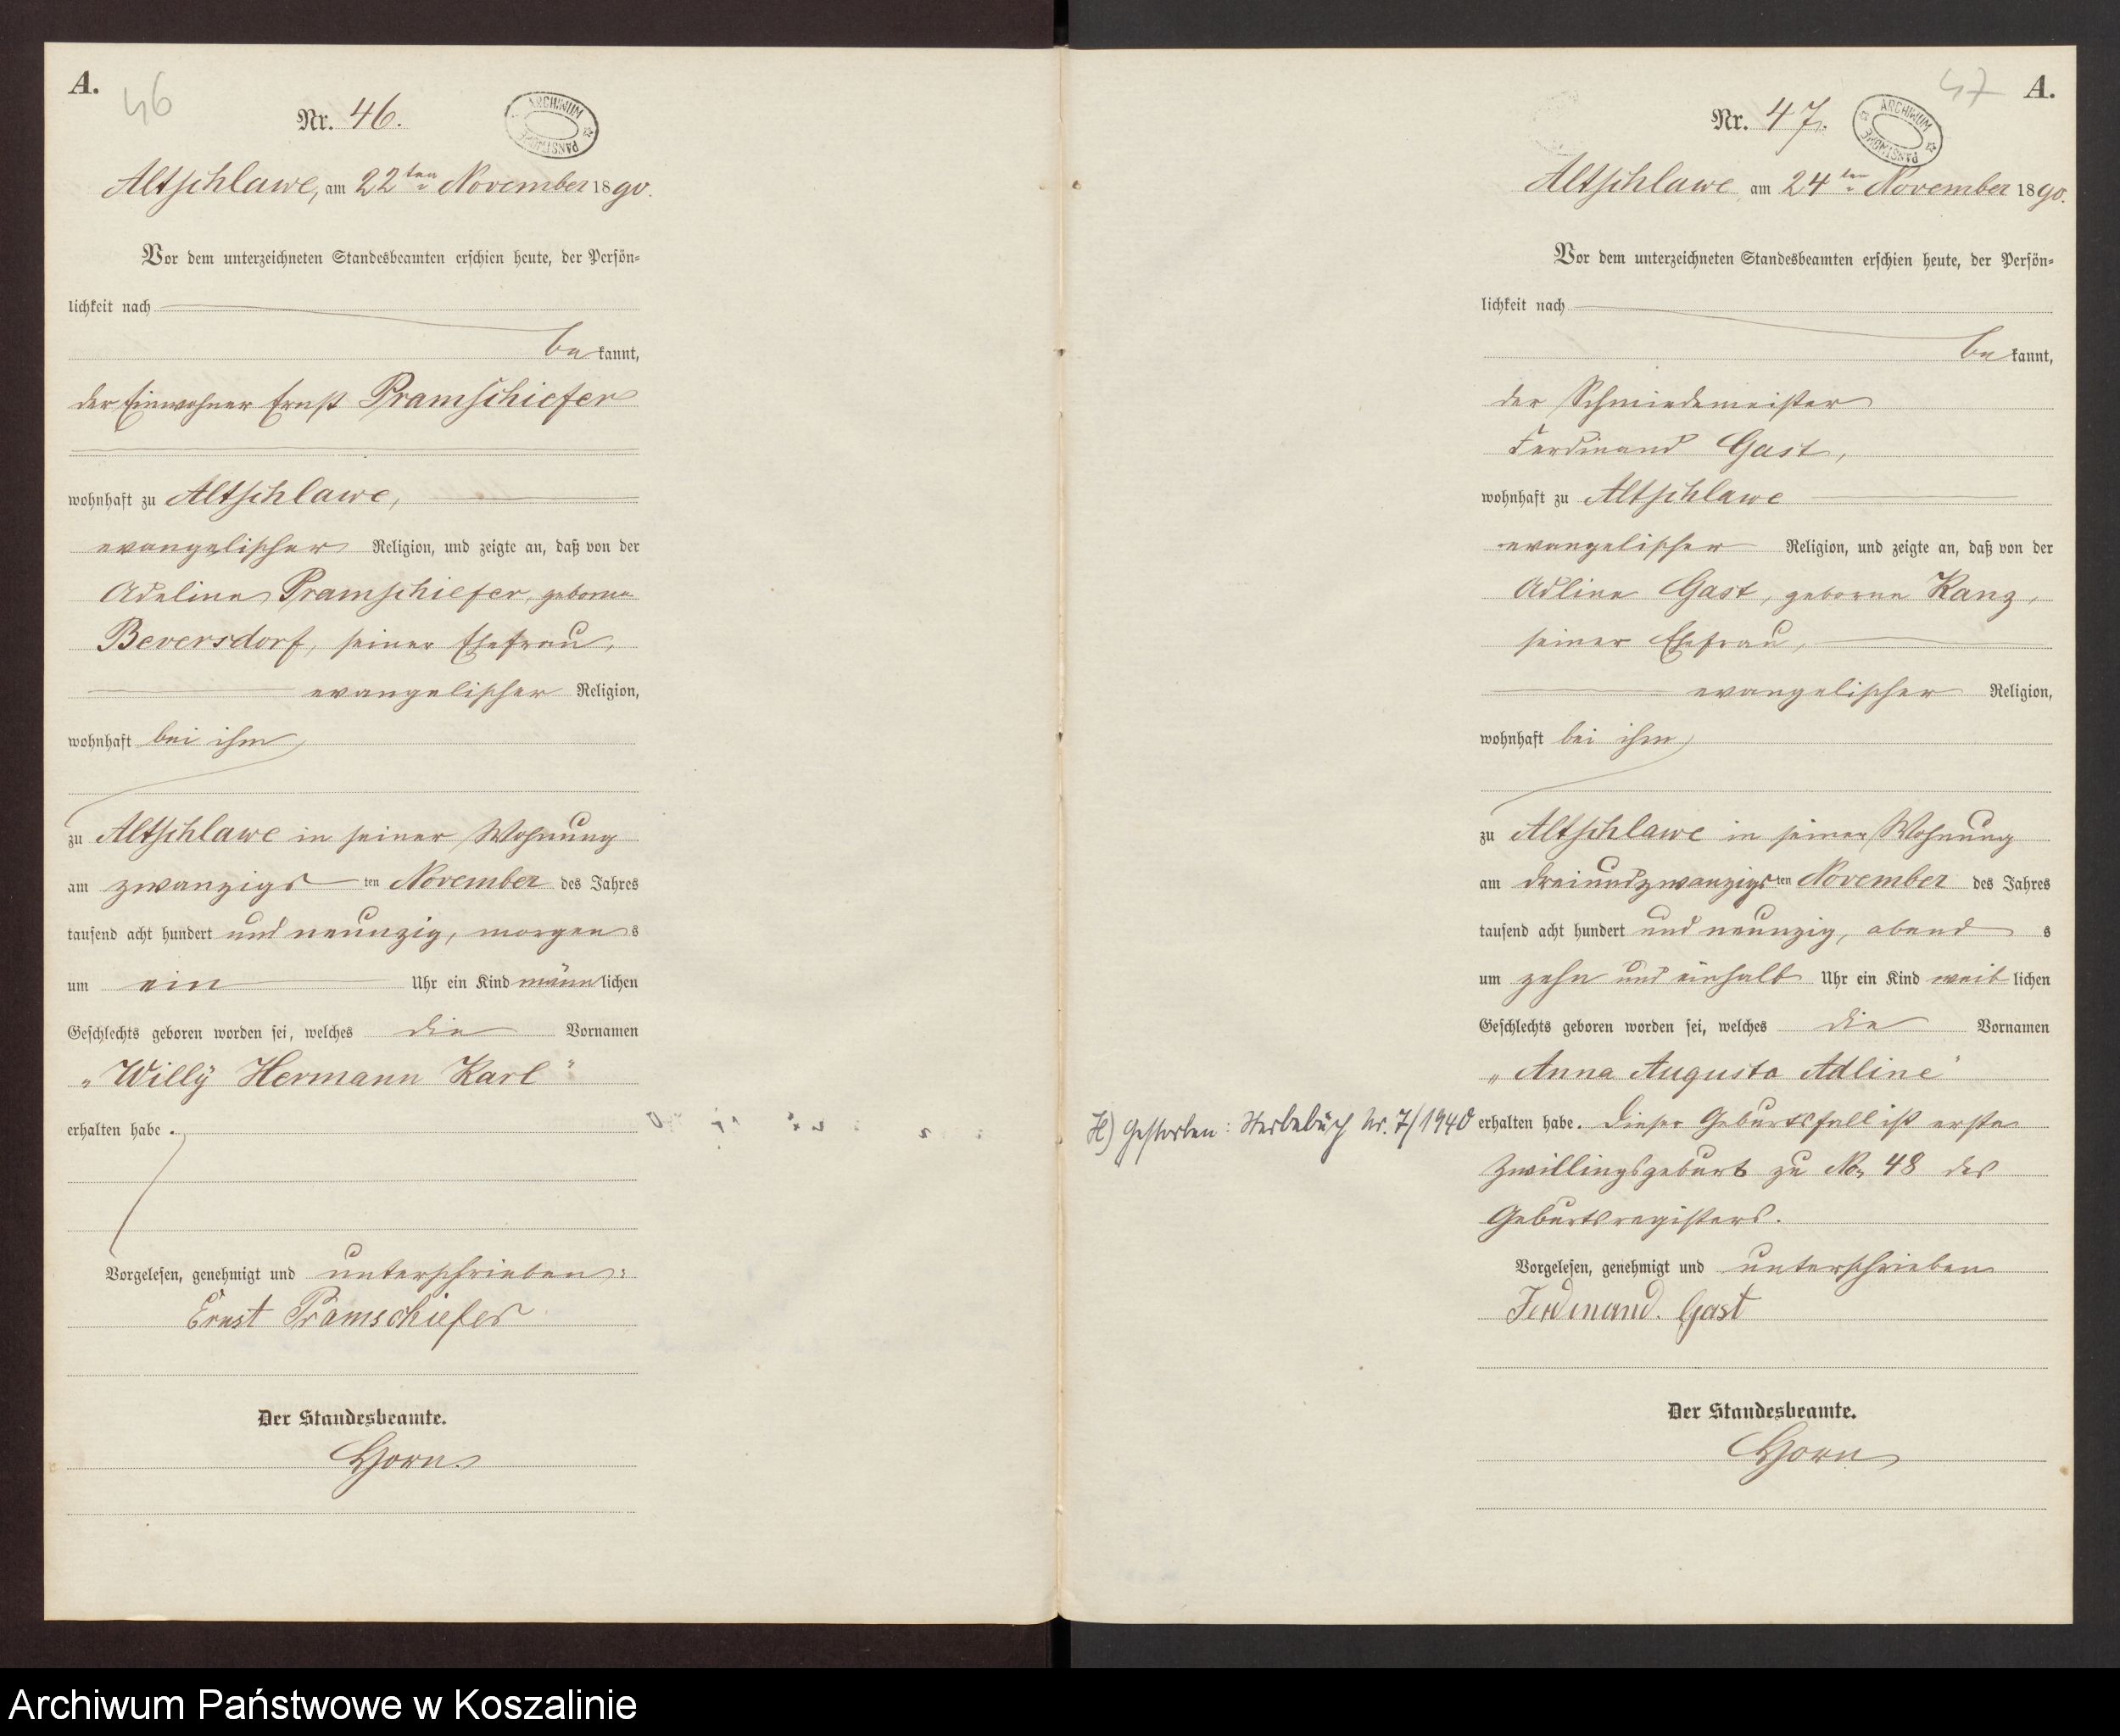 A.
46
Nr. 46.
ARCHIWUM PAŃSTWOWE
Altschlawe, am 22ten November 1890.
Vor dem unterzeichneten Standesbeamten erschien heute, der Persön-
lichkeit nach
be kannt,
der Einwohner Ernst Pramschiefer
wohnhaft zu Altschlawe,
evangelischer Religion, und zeigte an, daß von der
Adeline Pramschiefer, geborne
Beversdorf, seiner Ehefrau,
evangelischer Religion,
wohnhaft bei ihm
zu Altschlawe in seiner Wohnung
am zwanzigsten November des Jahres
tausend acht hundert und neunzig, morgens
um ein Uhr ein Kind männlichen
Geschlechts geboren worden sei, welches die Vornamen
„Willÿ Hermann Karl"
erhalten habe.
Vorgelesen, genehmigt und unterschrieben:
Ernst Pramschiefer
Der Standesbeamte.
Horn
47
A.
Nr. 47.
ARCHIWUM PAŃSTWOWE
Altschlawe am 24ten November 1890.
Vor dem unterzeichneten Standesbeamten erschien heute, der Persön-
lichkeit nach
be kannt,
der Schmiedemeister
Ferdinand Gast,
wohnhaft zu Altschlawe
evangelischer Religion, und zeigte an, daß von der
Adline Gast, geborne Kanz,
seiner Ehefrau,
evangelischer Religion,
wohnhaft bei ihm
zu Altschlawe in seiner Wohnung
am dreiundzwanzigsten November des Jahres
tausend acht hundert und neunzig, abends
um zehn und einhalb Uhr ein Kind weiblichen
Geschlechts geboren worden sei, welches die Vornamen
„Anna Auguste Adline"
erhalten habe. Dieser Geburtsfall ist erste
Zwillingsgeburt zu No. 48 des
Geburtsregisters.
H) Gestorben: Sterbebuch Nr. 7/1940
Vorgelesen, genehmigt und unterschrieben
Ferdinand. Gast
Der Standesbeamte.
Horn
Archiwum Państwowe w Koszalinie